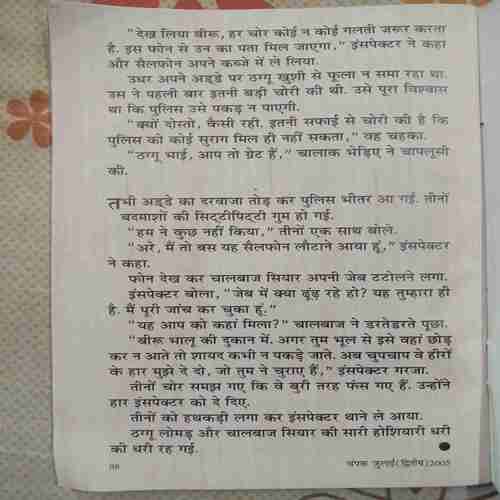 “देख लिया बीरू, हर चोर कोई न कोई गलती जरूर करता
है. इस फोन से उन का पता मिल जाएगा,” इंसपेक्टर ने कहा
और सैलफोन अपने कब्जे में ले लिया.
उधर अपने अड्डे पर ठग्गू खुशी से फूला न समा रहा था.
उस ने पहली बार इतनी बड़ी चोरी की थी. उसे पूरा विश्वास
था कि पुलिस उसे पकड़ न पाएगी.
“क्यों दोस्तो, कैसी रही. इतनी सफाई से चोरी की है कि
पुलिस को कोई सुराग मिल ही नहीं सकता,” वह चहका.
“ठग्गू भाई, आप तो ग्रेट हैं,” चालाक भेड़िए ने चापलूसी
की.
तभी अड्डे का दरवाजा तोड़ कर पुलिस भीतर आ गई. तीनों
बदमाशों की सिट्टीपिट्टी गुम हो गई.
“हम ने कुछ नहीं किया,” तीनों एक साथ बोले.
“अरे, मैं तो बस यह सैलफोन लौटाने आया हूं,” इंसपेक्टर
ने कहा.
फोन देख कर चालबाज सियार अपनी जेब टटोलने लगा.
इंसपेक्टर बोला, “जेब में क्या ढूंढ़ रहे हो? यह तुम्हारा ही
है. मैं पूरी जांच कर चुका हूं.”
“यह आप को कहां मिला?” चालबाज ने डरतेडरते पूछा.
“बीरू भालू की दुकान में. अगर तुम भूल से इसे वहां छोड़
कर न आते तो शायद कभी न पकड़े जाते. अब चुपचाप वे हीरों
के हार मुझे दे दो, जो तुम ने चुराए हैं,” इंसपेक्टर गरजा.
तीनों चोर समझ गए कि वे बुरी तरह फंस गए हैं. उन्होंने
हार इंसपेक्टर को दे दिए.
तीनों को हथकड़ी लगा कर इंसपेक्टर थाने ले आया.
ठग्गू लोमड़ और चालबाज सियार की सारी होशियारी धरी
की धरी रह गई.
चंपक जुलाई (द्वितीय) 2005